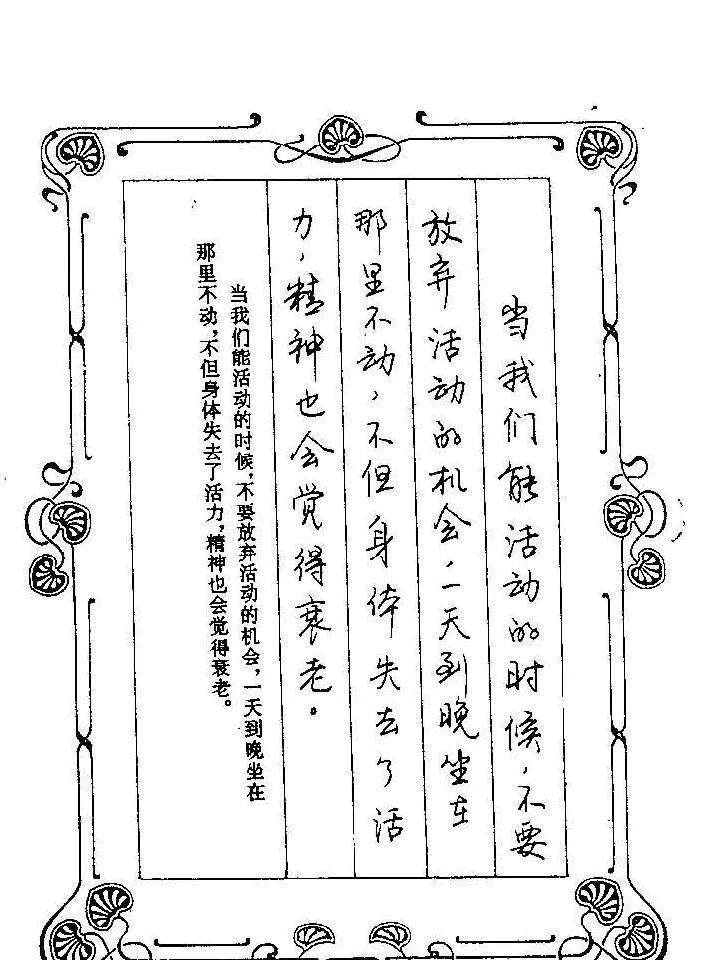 当我们能活动的时候，不要
放弃活动的机会，一天到晚坐在
那里不动，不但身体失去了活
力，精神也会觉得衰老。
当我们能活动的时候，不要放弃活动的机会，一天到晚坐在
那里不动，不但身体失去了活力，精神也会觉得衰老。